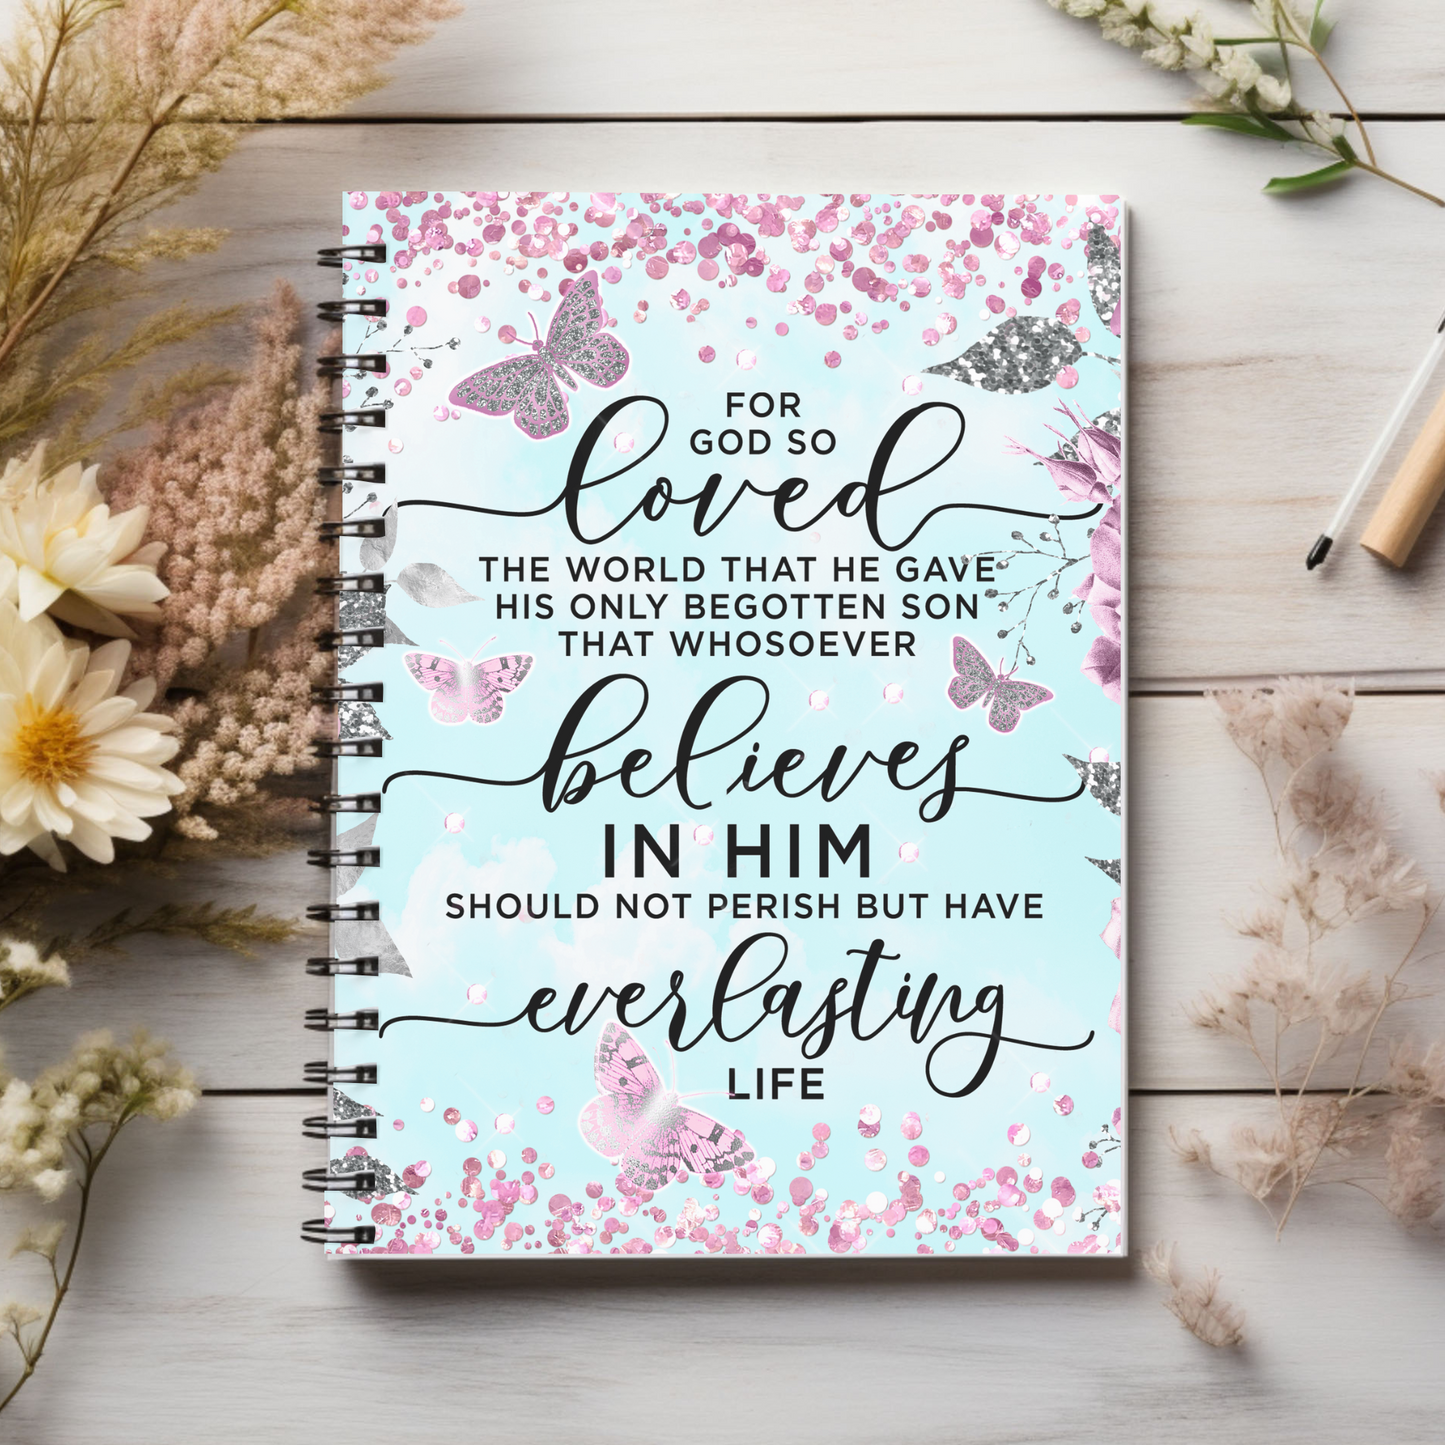 FOR
GOD SO
loved
THE WORLD THAT HE GAVE
HIS ONLY BEGOTTEN SON
THAT WHOSOEVER
believes
IN HIM
SHOULD NOT PERISH BUT HAVE
everlasting
LIFE